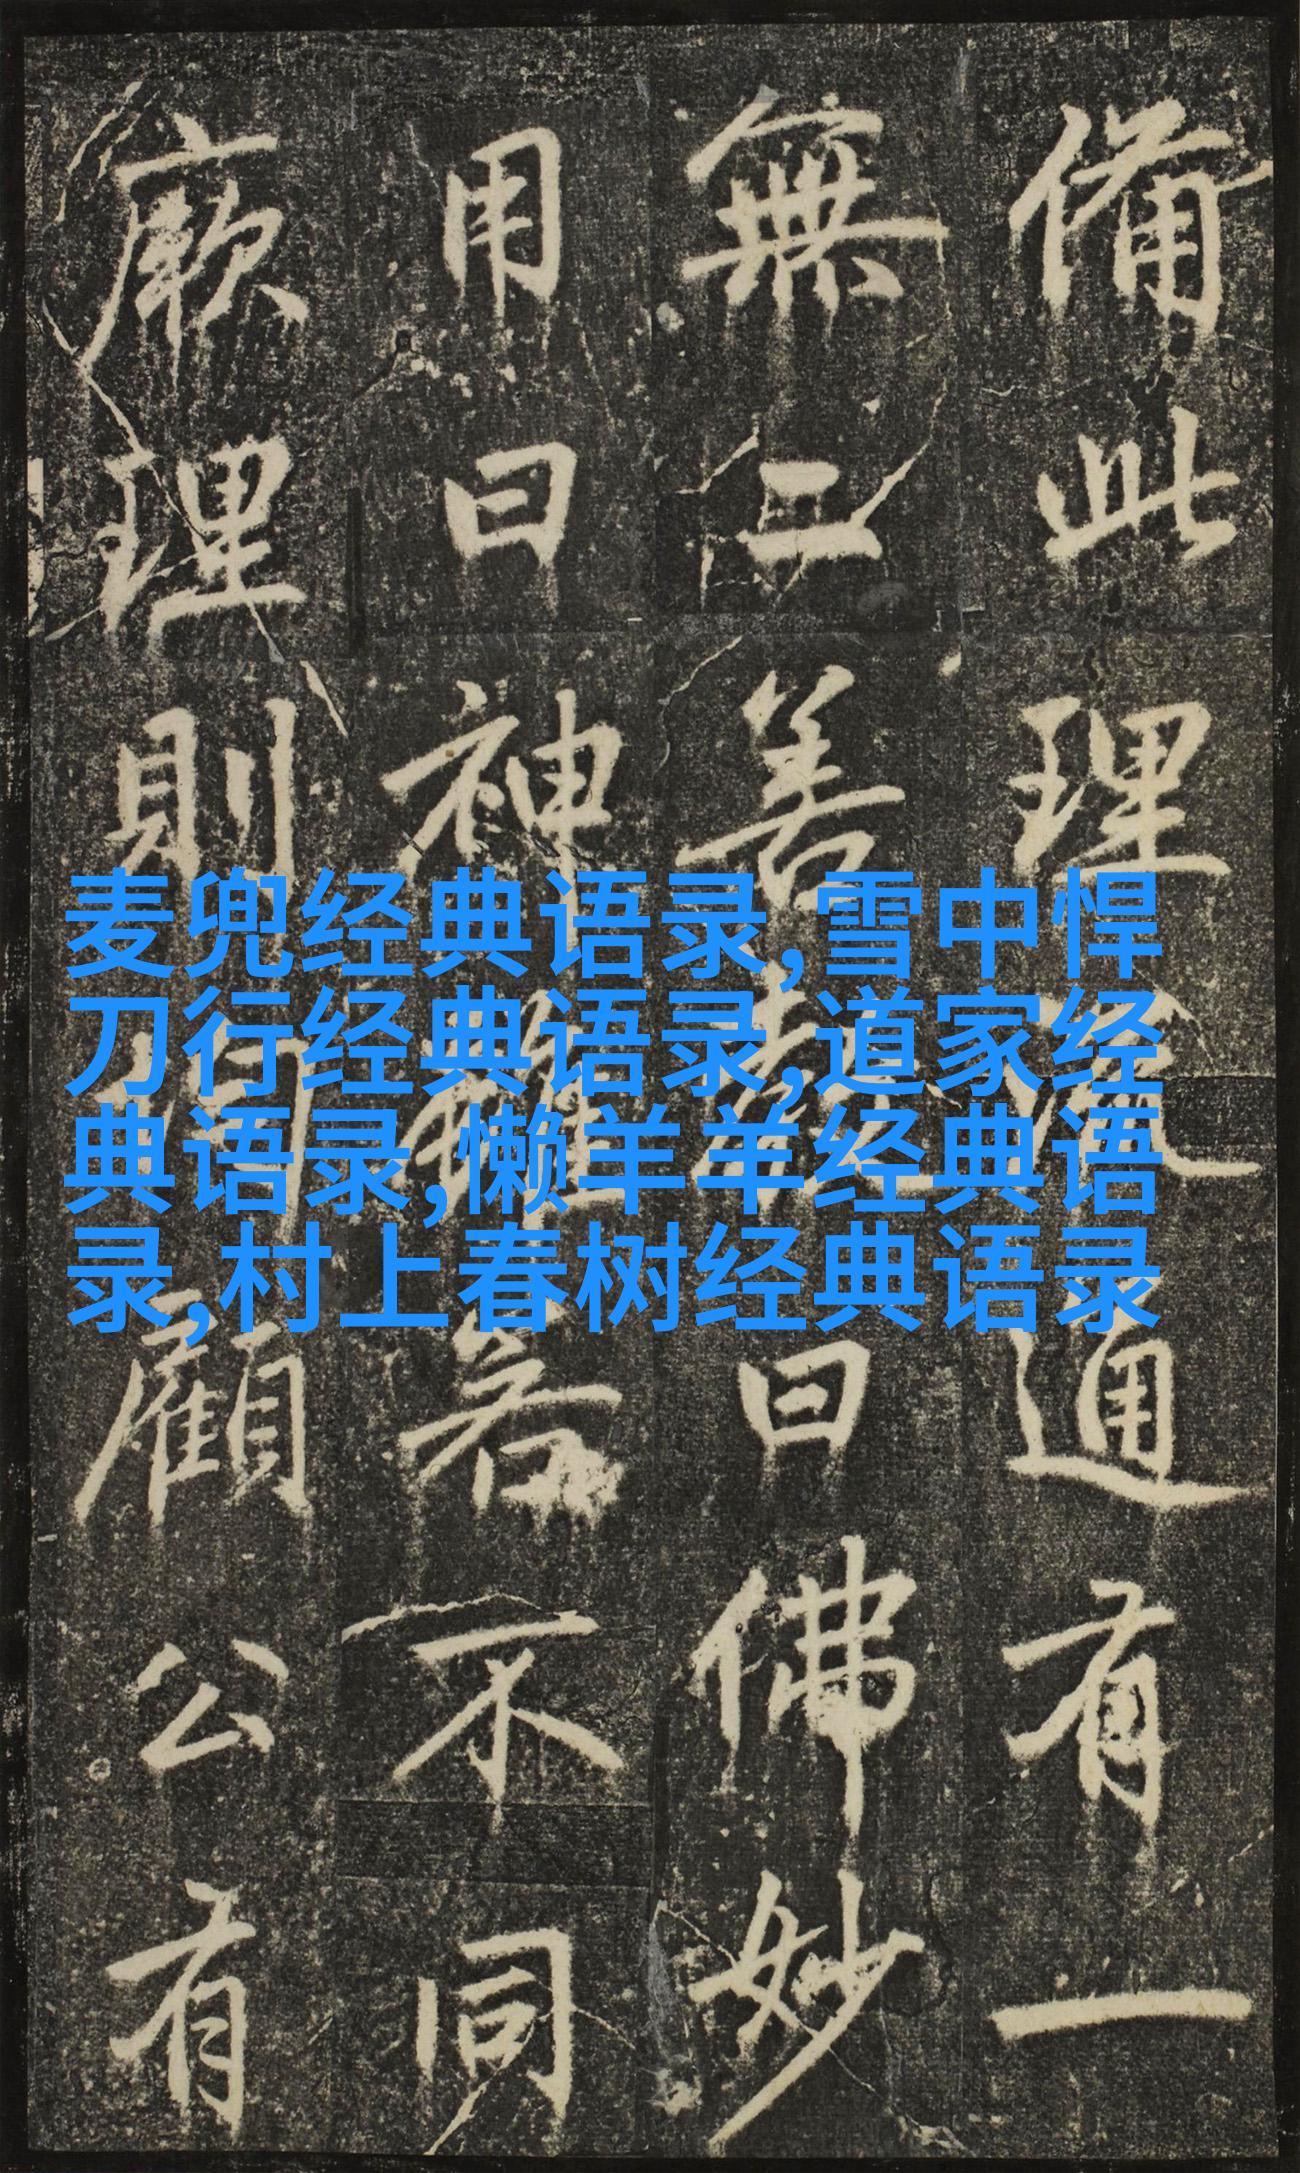 備此理通有一
無二善曰佛妙
用曰神若不同
厥理則均顧公有
麦兜经典语录,雪中悍
刀行经典语录,道家经
典语录,懒羊羊经典语
录,村上春树经典语录